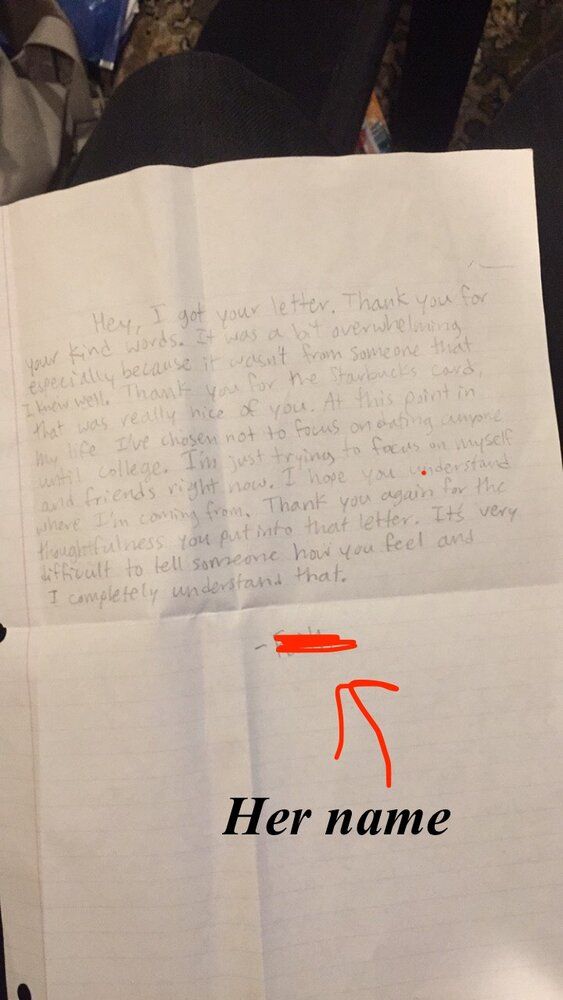 Hey, I got your letter. Thank you for
your kind words. It was a bit overwhelming
especially because it wasn't from someone that
I knew well. Thank you for the Starbucks Card,
that was really nice of you. At this point in
my life I've chosen not to focus on dating anyone
until college. I'm just trying to focus on myself
and friends right now. I hope you understand
where I'm coming from. Thank you again for the
thoughtfulness you put into that letter. It's very
difficult to tell someone how you feel and
I completely understand that.
-
Her name